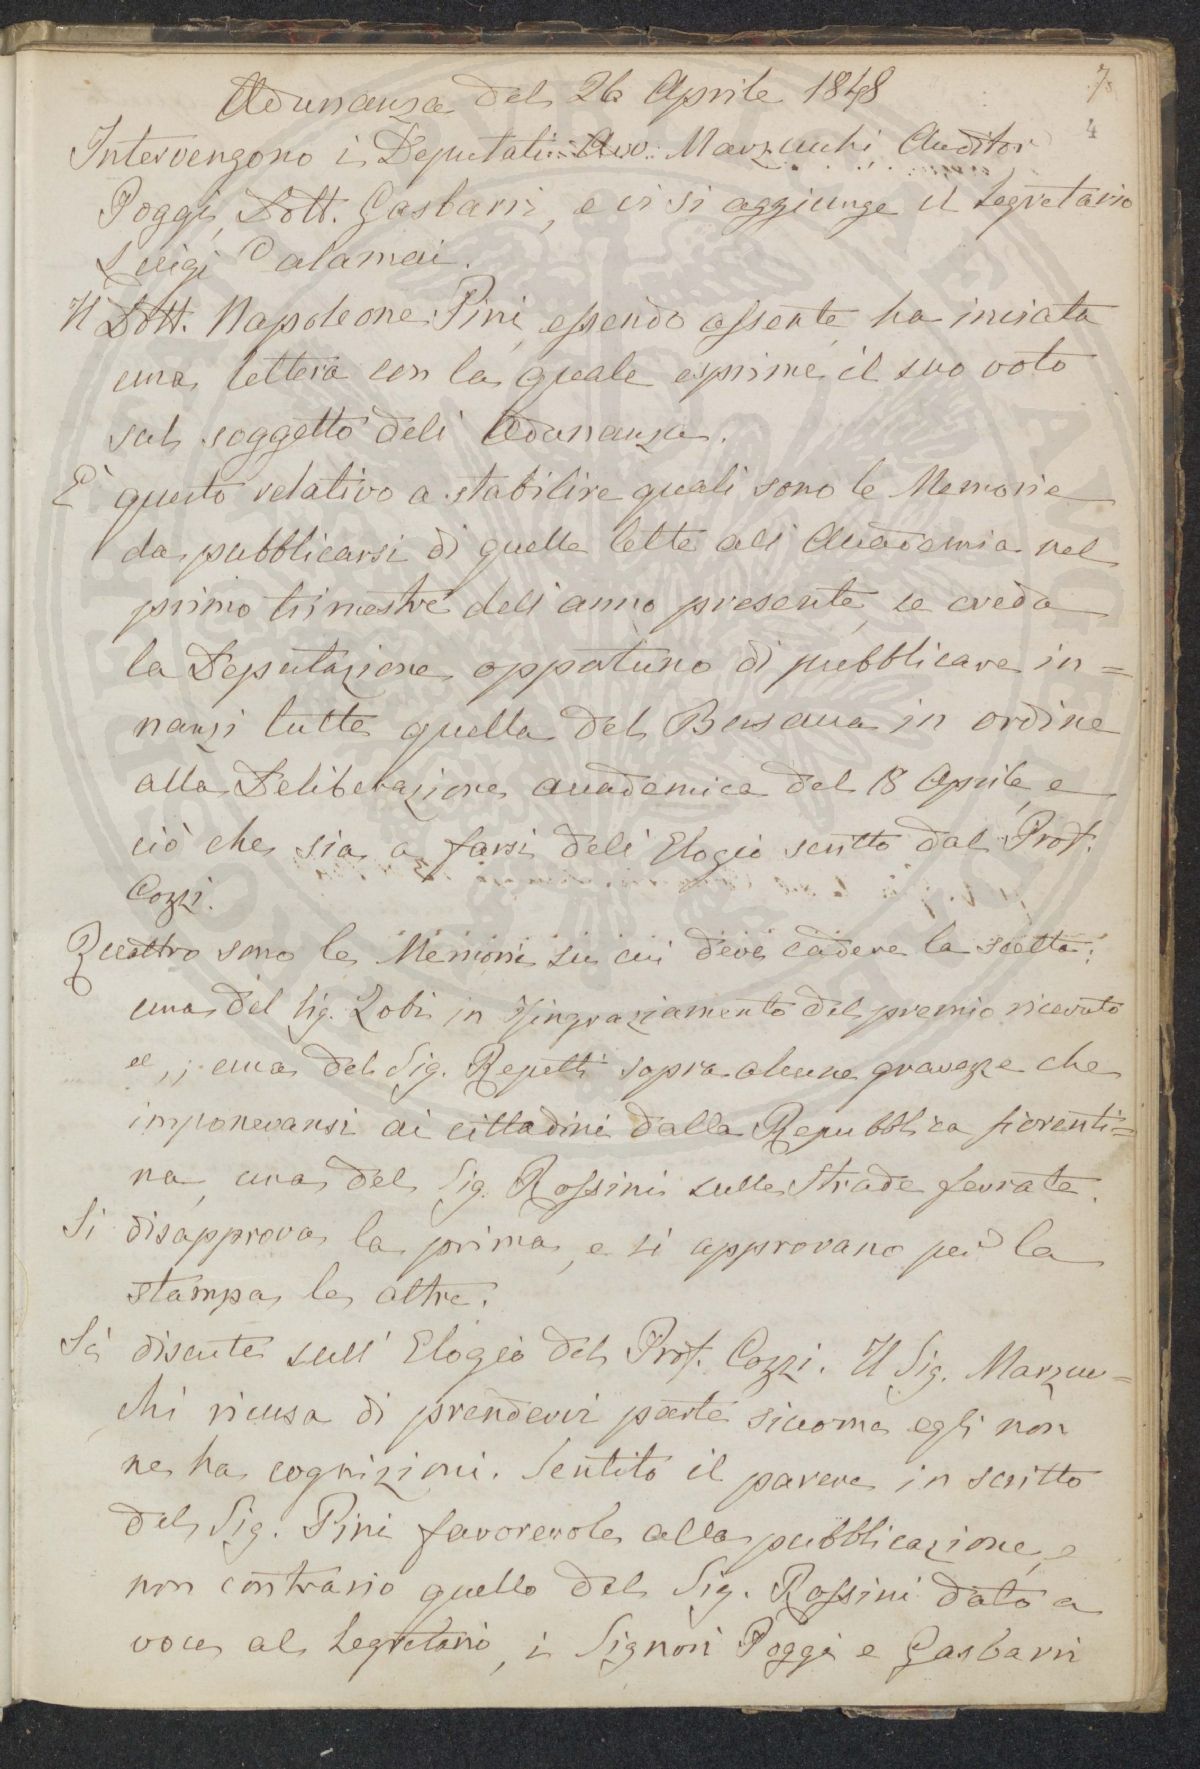 7
4
Adunanza del 26 Aprile 1848
Intervengono i Deputati Avv. Marzucchi Auditor
Poggi, Dott. Gasbarri, e vi si aggiunge il Segretario
Luigi Calamai.
Il Dott. Napoleone Pini, essendo assente, ha inviata
una lettera con la quale esprime il suo voto
sul soggetto dell'Adunanza.
È questo relativo a stabilire quali sono le Memorie
da pubblicarsi di quelle lette all'Accademia nel
primo trimestre dell'anno presente, se creda
la Deputazione opportuno di pubblicare in=
nanzi tutte quella del Busacca in ordine
alla Deliberazione accademica del 18 Aprile, e
ciò che sia a farsi dell'Elogio scritto dal Prof.
Cozzi.
Quattro sono le Memorie su cui deve cadere la scelta:
una del Sig. Zobi in ringraziamento del premio ricevuto
una del Sig. Repetti sopra alcune gravezze che
imponevansi ai cittadini dalla Repubblica fiorenti=
na, una del Sig. Rossini sulle Strade ferrate.
Si disapprova la prima, e si approvano per la
stampa le altre.
Si discute sull'Elogio del Prof. Cozzi. Il Sig. Marzuc=
chi ricusa di prendervi parte siccome egli non
ne ha cognizioni. Sentito il parere in scritto
del Sig. Pini favorevole alla pubblicazione, e
non contrario quello del Sig. Rossini dato a
voce al Segretario, i Signori Poggi e Gasbarri